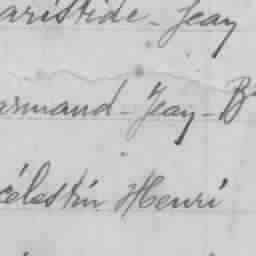 aristide - Jean
armand - Jean - B
célestin Henri